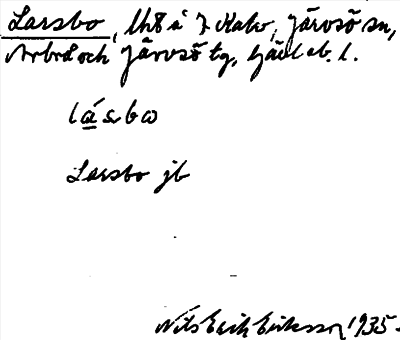 Larsbo, lht å 7 Kalv, Järvsö sn,
Arbrå och Järvsö tg, Gävleb. l.
lásbo
Larsbo jb
Nils Erik Eriksson 1935.